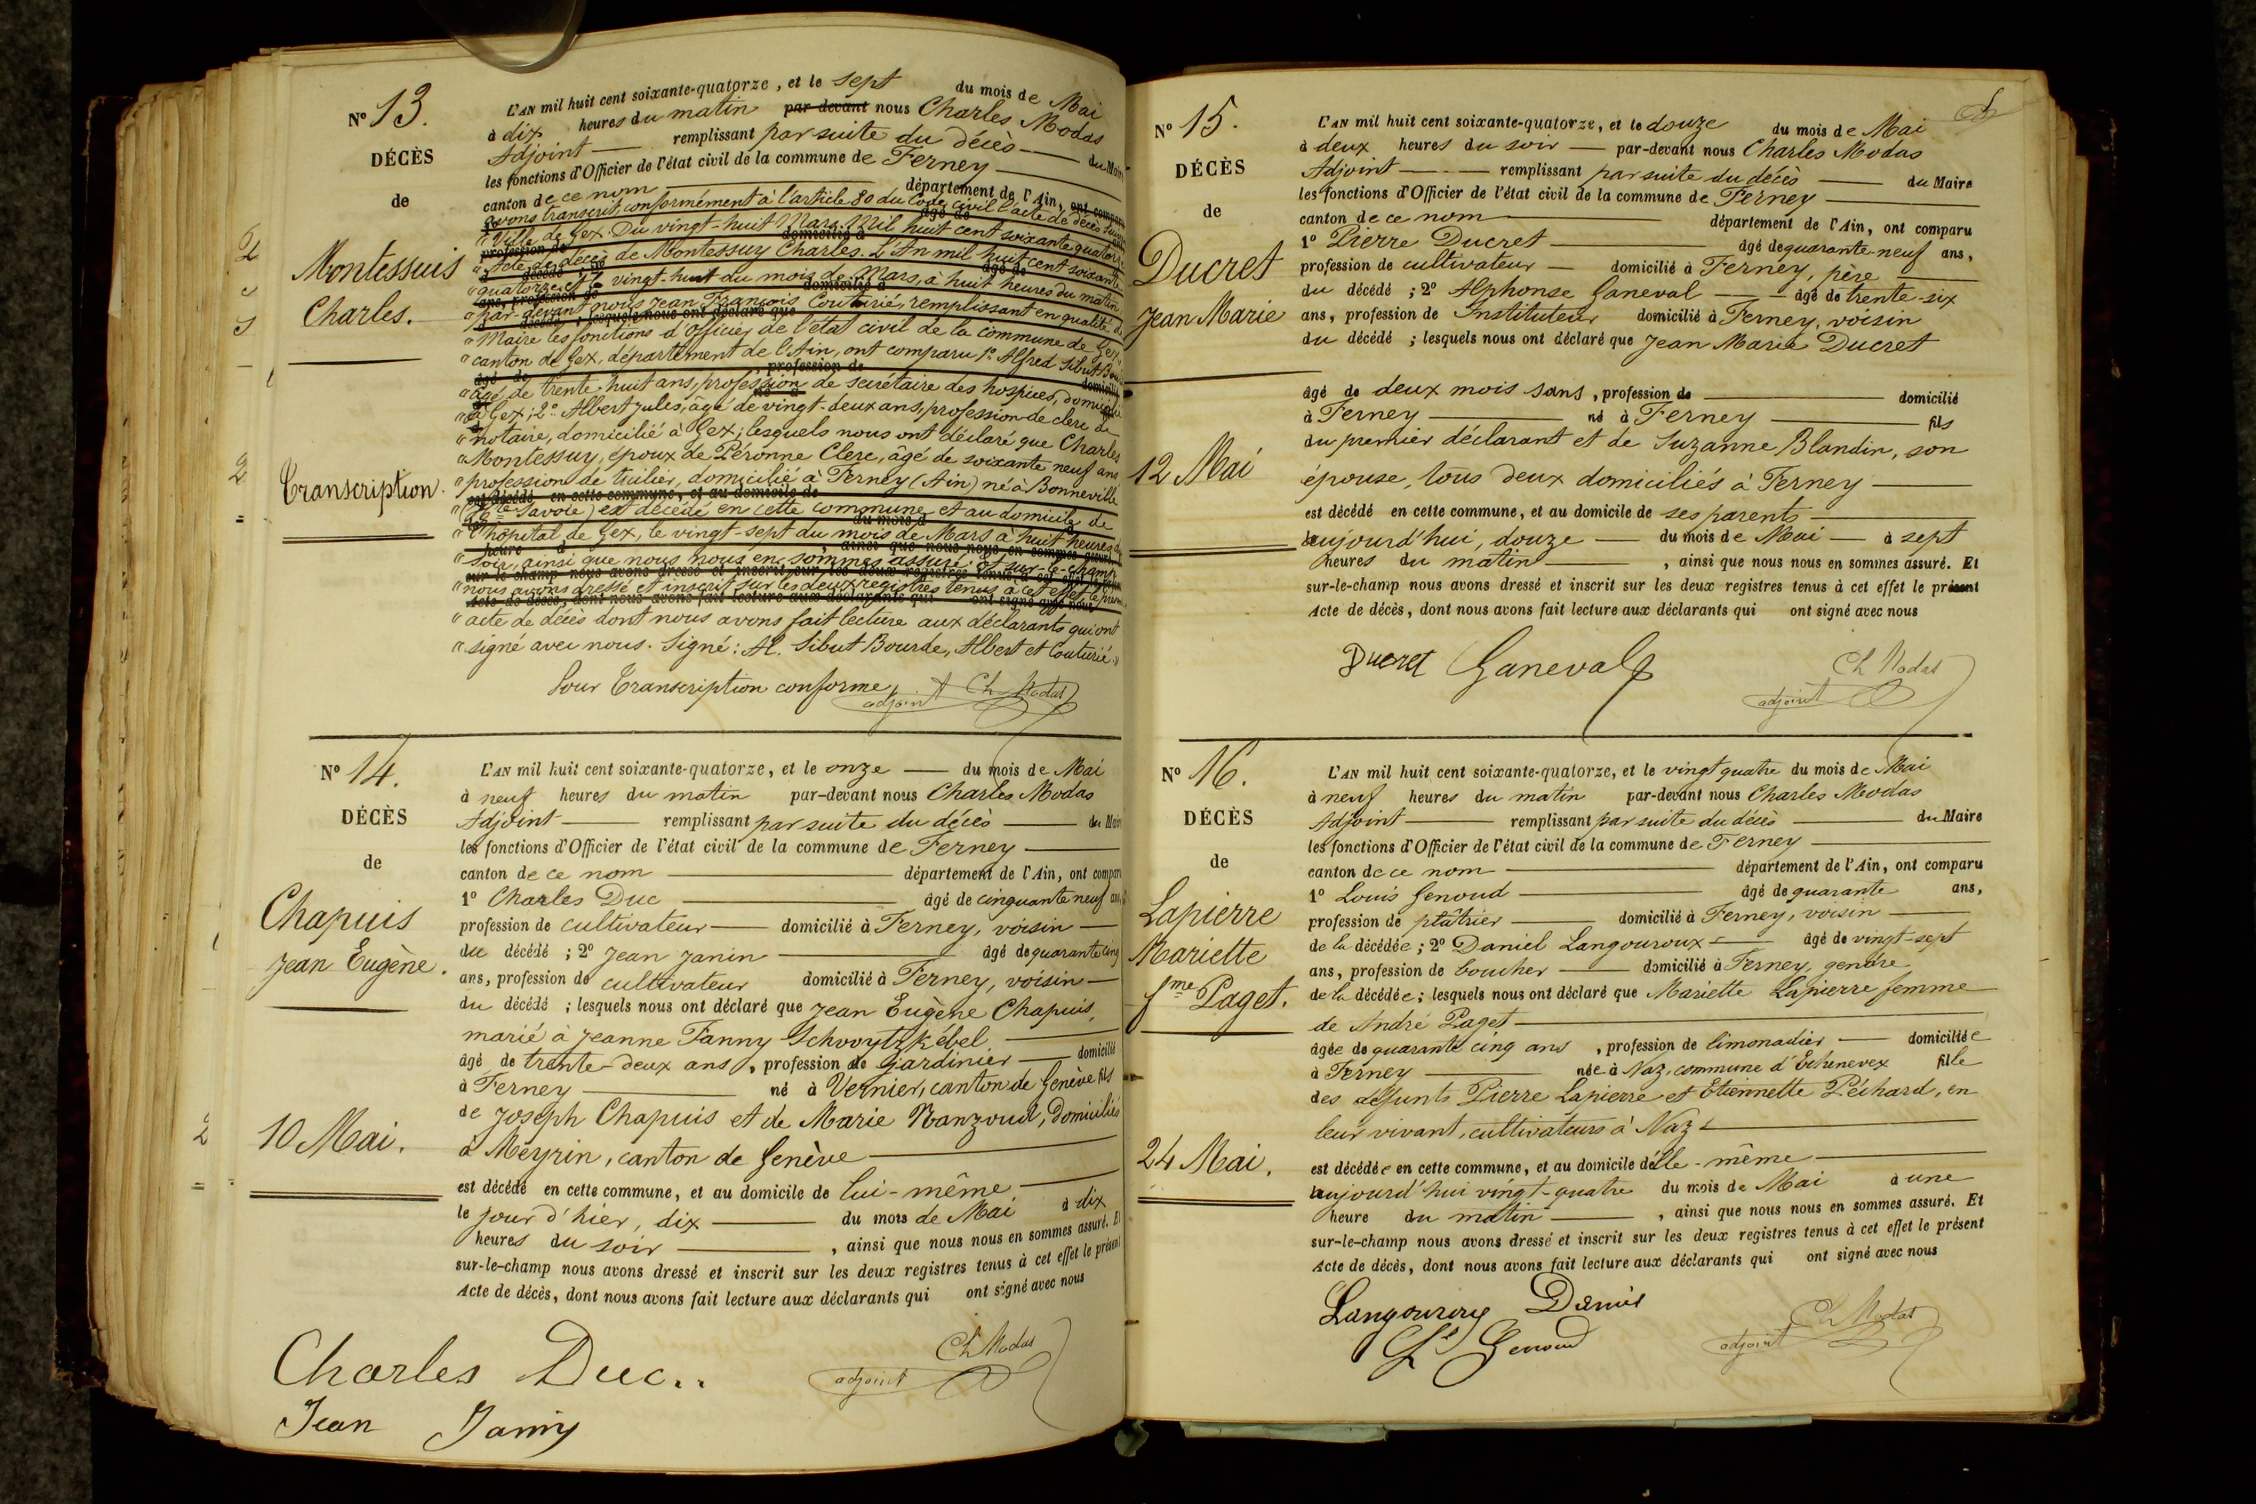 N° 13.
DÉCÈS
de
Montessuis
Charles.
Transcription.
L'AN mil huit cent soixante-quatorze, et le sept du mois de Mai
à dix heures du matin par-devant nous Charles Modas
Adjoint remplissant par suite du décès du Maire
les fonctions d'Officier de l'état civil de la commune de Ferney
canton de ce nom département de l'Ain, ont comparu
avons transcrit conformément à l'article 80 du Code civil l'acte de décès suivant
" Ville de Gex. Du vingt-huit Mars Mil huit cent soixante quatorze
" Acte de décès de Montessuy Charles. L'An mil huit cent soixante
" quatorze et le vingt-huit du mois de Mars, à huit heures du matin
" par-devant nous Jean François Couturié, remplissant en qualité de
" Maire les fonctions d'officier de l'état civil de la commune de Gex
" canton de Gex, département de l'Ain, ont comparu 1° Alfred Sibut Bourde
" âgé de trente-huit ans, profession de secrétaire des hospices, domicilié
" à Gex; 2° Albert Jules, âgé de vingt-deux ans, profession de clerc de
" notaire, domicilié à Gex; lesquels nous ont déclaré que Charles
" Montessuy, époux de Péronne Clerc, âgé de soixante neuf ans
" profession de tuilier, domicilié à Ferney (Ain) né à Bonneville
" (Hte Savoie) est décédé en cette commune et au domicile de
" l'hôpital de Gex, le vingt-sept du mois de Mars à huit heures du
" soir, ainsi que nous nous en sommes assuré. Et sur-le-champ
" nous avons dressé et inscrit sur les deux registres tenus à cet effet le présent
" acte de décès dont nous avons fait lecture aux déclarants qui ont
" signé avec nous. Signé: Al. Sibut Bourde, Albert et Couturié. "
Pour Transcription conforme, Ch Modas
adjoint
N° 14.
DÉCÈS
de
Chapuis
Jean Eugène.
10 Mai.
L'AN mil huit cent soixante-quatorze, et le onze du mois de Mai
à neuf heures du matin par-devant nous Charles Modas
Adjoint remplissant par suite du décès du Maire
les fonctions d'Officier de l'état civil de la commune de Ferney
canton de ce nom département de l'Ain, ont comparu
1° Charles Duc âgé de cinquante neuf ans,
profession de cultivateur domicilié à Ferney, voisin
du décédé ; 2° Jean Janin âgé de quarante cinq
ans, profession de cultivateur domicilié à Ferney, voisin
du décédé ; lesquels nous ont déclaré que Jean Eugène Chapuis,
marié à Jeanne Fanny Schvoytzkébel
âgé de trente-deux ans, profession de Jardinier domicilié
à Ferney né à Vernier, canton de Genève fils
de Joseph Chapuis et de Marie Ranzoud, domiciliés
à Meyrin, canton de Genève
est décédé en cette commune, et au domicile de lui-même
le jour d'hier, dix du mois de Mai à dix
heures du soir , ainsi que nous nous en sommes assuré. Et
sur-le-champ nous avons dressé et inscrit sur les deux registres tenus à cet effet le présent
Acte de décès, dont nous avons fait lecture aux déclarants qui ont signé avec nous
Charles Duc..
Ch Modas
adjoint
Jean Janin
N° 15.
DÉCÈS
de
Ducret
Jean Marie
12 Mai
L'AN mil huit cent soixante-quatorze, et le douze du mois de Mai
à deux heures du soir par-devant nous Charles Modas
Adjoint remplissant par suite du décès du Maire
les fonctions d'Officier de l'état civil de la commune de Ferney
canton de ce nom département de l'Ain, ont comparu
1° Pierre Ducret âgé de quarante-neuf ans,
profession de cultivateur domicilié à Ferney, père
du décédé ; 2° Alphonse Ganeval âgé de trente-six
ans, profession de Instituteur domicilié à Ferney, voisin
du décédé ; lesquels nous ont déclaré que Jean Marie Ducret
âgé de deux mois sans, profession de domicilié
à Ferney né à Ferney fils
du premier déclarant et de Suzanne Blandin, son
épouse, tous deux domiciliés à Ferney
est décédé en cette commune, et au domicile de ses parents
aujourd'hui, douze du mois de Mai à sept
heures du matin , ainsi que nous nous en sommes assuré. Et
sur-le-champ nous avons dressé et inscrit sur les deux registres tenus à cet effet le présent
Acte de décès, dont nous avons fait lecture aux déclarants qui ont signé avec nous
Ducret Ganeval
Ch Modas
adjoint
N° 16.
DÉCÈS
de
Lapierre
Mariette
fme Paget.
24 Mai.
L'AN mil huit cent soixante-quatorze, et le vingt quatre du mois de Mai
à neuf heures du matin par-devant nous Charles Modas
Adjoint remplissant par suite du décès du Maire
les fonctions d'Officier de l'état civil de la commune de Ferney
canton de ce nom département de l'Ain, ont comparu
1° Louis Genoud âgé de quarante ans,
profession de plâtrier domicilié à Ferney, voisin
de la décédée ; 2° Daniel Langouroux âgé de vingt-sept
ans, profession de boucher domicilié à Ferney, gendre
de la décédée ; lesquels nous ont déclaré que Mariette Lapierre femme
de André Paget
âgée de quarante cinq ans, profession de limonadier domiciliée
à Ferney née à Naz, commune d'Echenevex fille
des défunts Pierre Lapierre et Etiennette Péchard, en
leur vivant, cultivateurs à Naz
est décédée en cette commune, et au domicile d'elle-même
aujourd'hui vingt-quatre du mois de Mai à une
heure du matin , ainsi que nous nous en sommes assuré. Et
sur-le-champ nous avons dressé et inscrit sur les deux registres tenus à cet effet le présent
Acte de décès, dont nous avons fait lecture aux déclarants qui ont signé avec nous
Ls Genoud
Ch Modas
adjoint